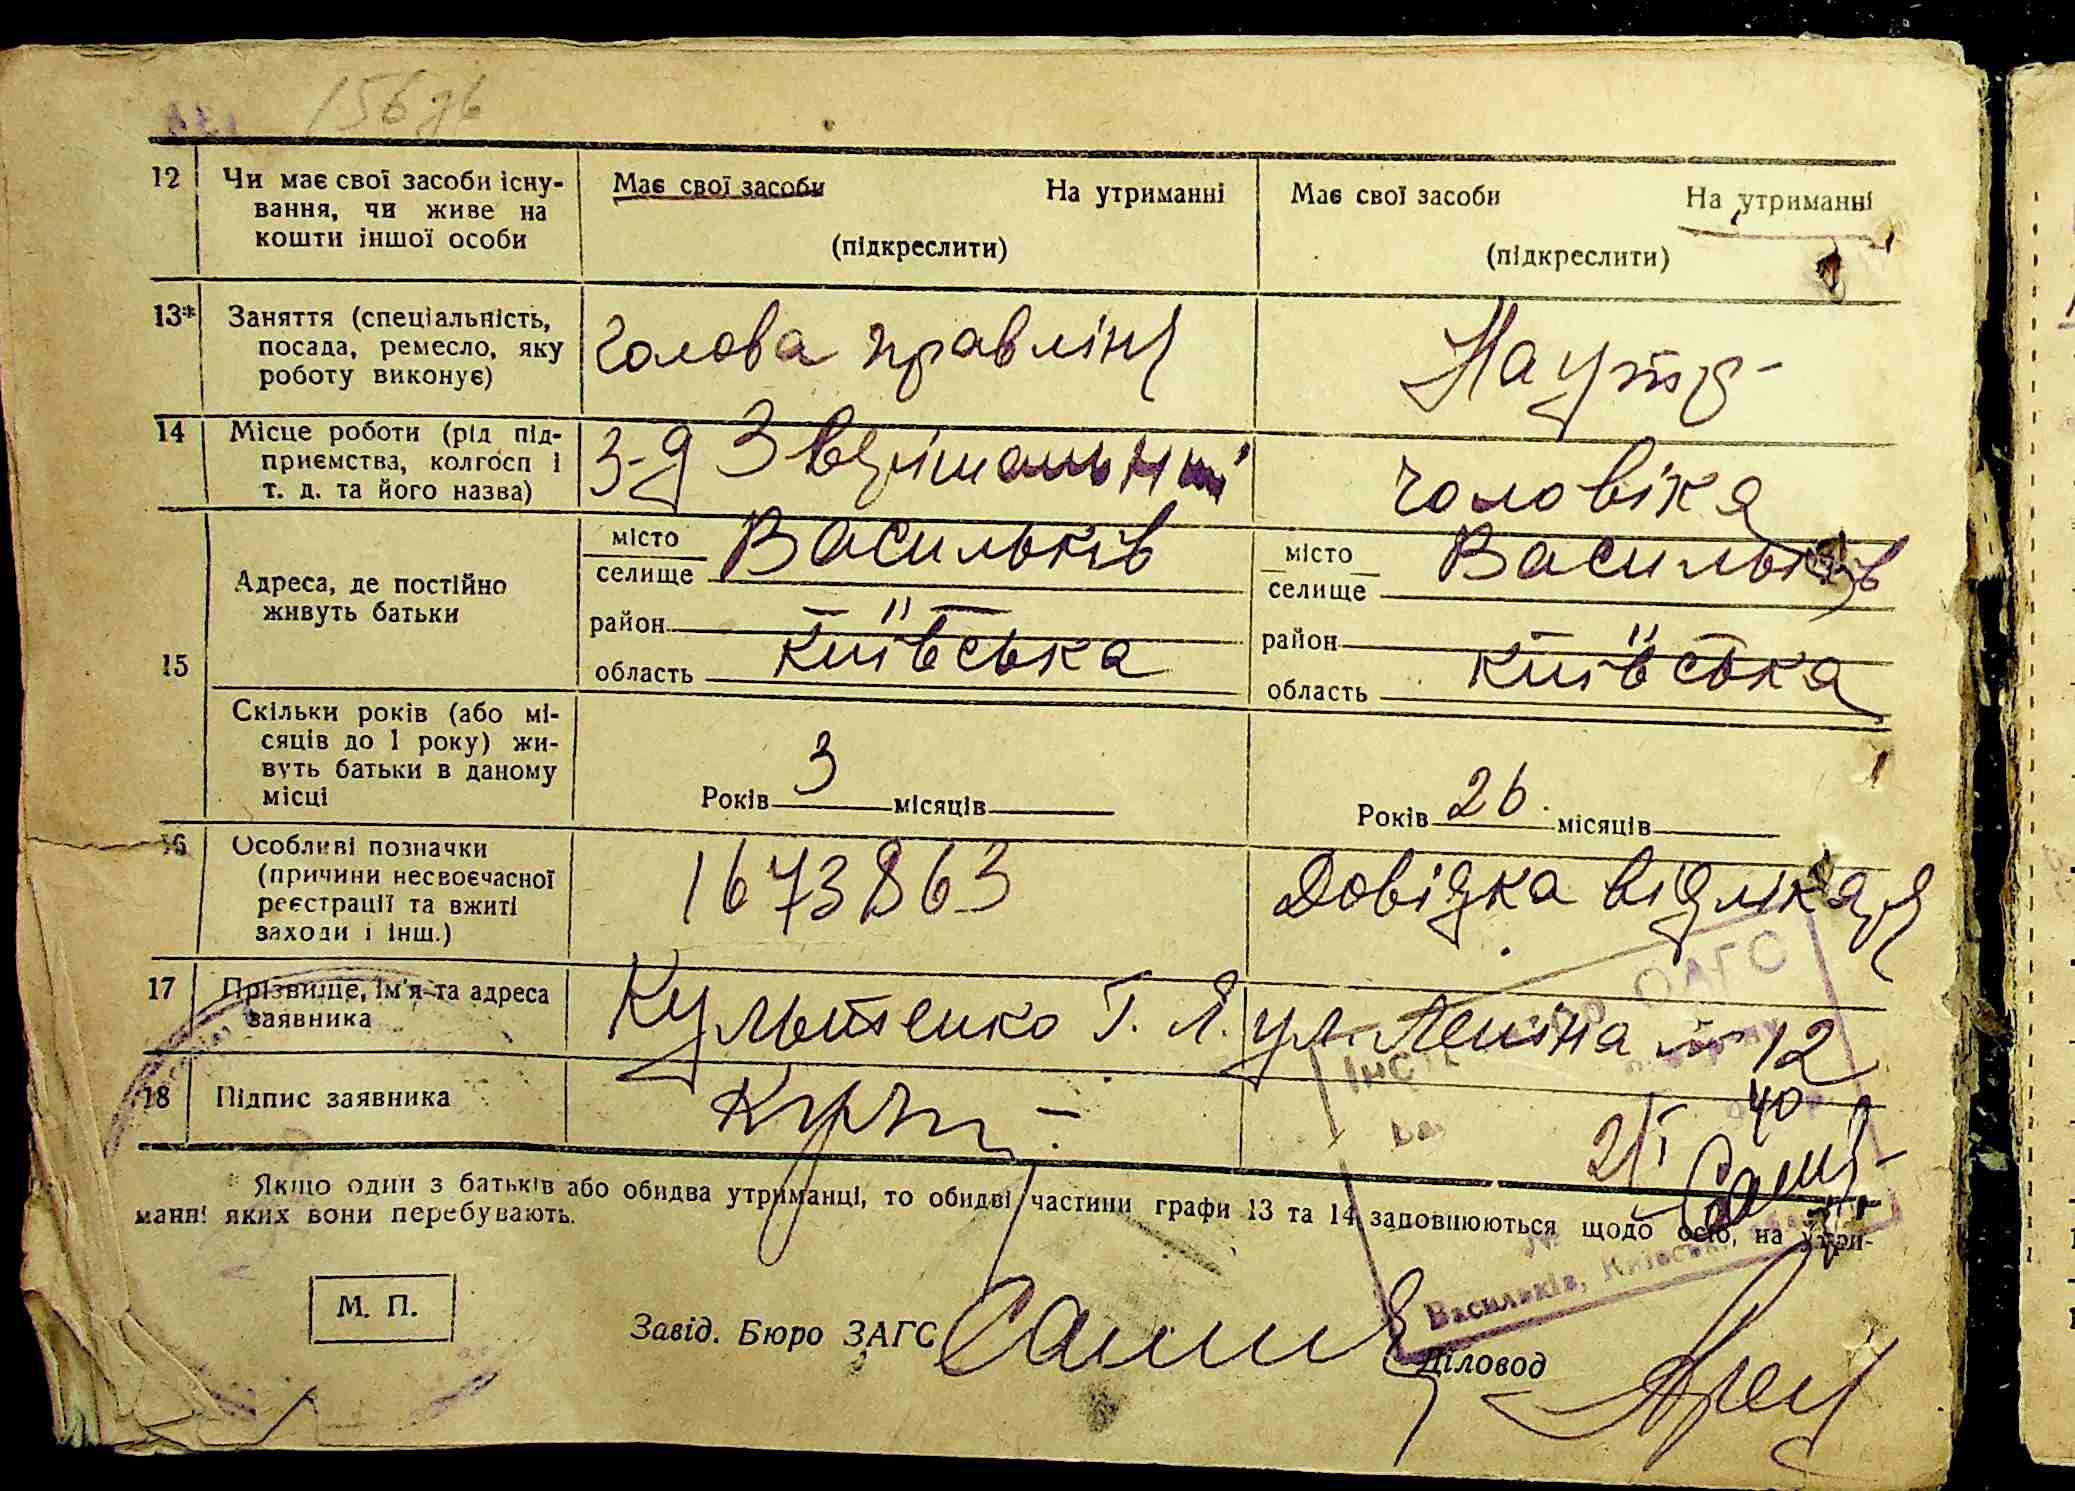 156 зв
12 Чи має свої засоби існу-
вання, чи живе на
кошти іншої особи
Має свої засоби На утриманні
(підкреслити)
Має свої засоби На утриманні
(підкреслити)
13* Заняття (спеціальність,
посада, ремесло, яку
роботу виконує)
Голова правлін
На утр-
14 Місце роботи (рід під-
приємства, колгосп і
т. д. та його назва)
З-д
чоловіка
15 Адреса, де постійно
живуть батьки
місто Васильків
селище
район — " —
область Київська
місто Васильків
селище
район — " —
область Київська
Скільки років (або мі-
сяців до 1 року) жи-
вуть батьки в даному
місці
Років 3 місяців
Років 26. місяців
16 Особливі позначки
(причини несвоєчасної
реєстрації та вжиті
заходи і інш.)
1673863
Довідка від лікаря
17 Прізвище, ім'я та адреса
заявника
Культенко Г. Л. ул. Леніна № 12
18 Підпис заявника
40
2/I
* Якщо один з батьків або обидва утриманці, то обидві частини графи 13 та 14 заповнюються щодо осіб, на утри-
манні яких вони перебувають.
М. П.
Завід. Бюро ЗАГС
Діловод
ОАГС
Васильків, Київської